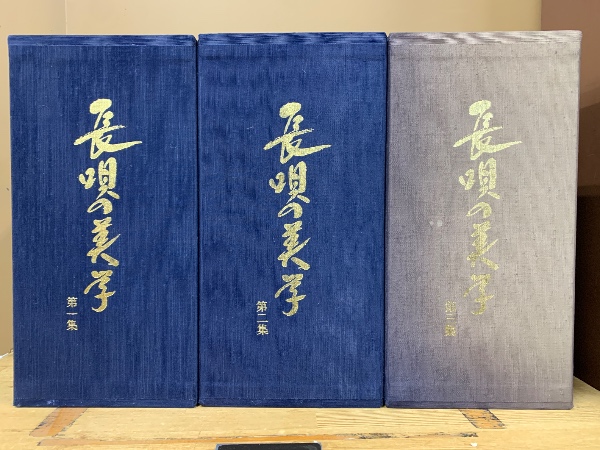 長唄の美学
第一集
長唄の美学
第二集
長唄の美学
第三集